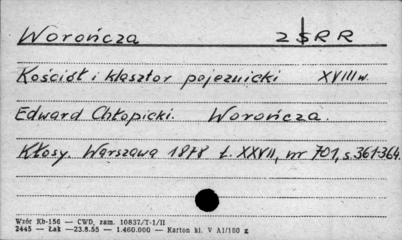 Worończa ZSRR
Kościół i klasztor pojezuicki XVIII w.
Edward Chłopicki. Worończa.
Kłosy. Warszawa 1878 t. XXVII, nr 701, s. 361-364.
Wzór Kb-156 — CWD, zam. 10837/T-1/II
2445 — Łak — 23.8.55 — 1.460.000 — Karton kl. V A1/180 g